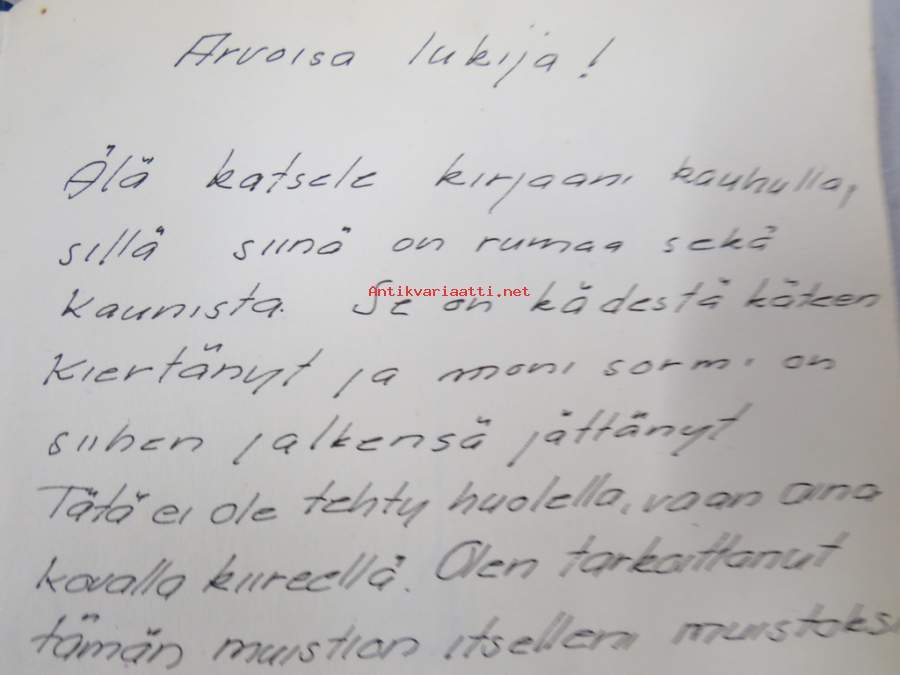 Arvoisa lukija!
Älä katsele kirjaani kauhulla,
sillä siinä on rumaa sekä
kaunista. Se on kädestä käteen
Antikvariaatti.net
kiertänyt ja moni sormi on
siihen jalkensä jättänyt
Tätä ei ole tehty huolella, vaan aina
kovalla kiireellä. Olen tarkoittanut
tämän muistion itselleni muistoksi